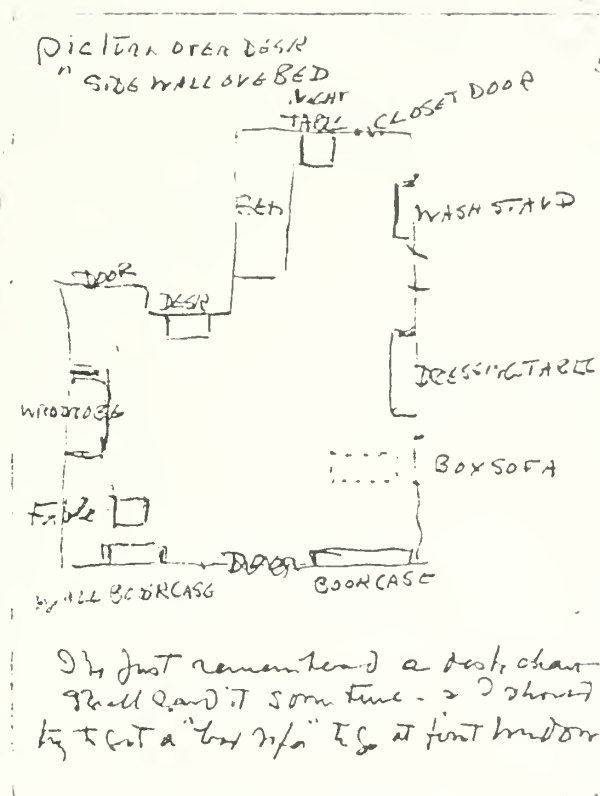 PICTURE OVER DESK
" SIDE WALL OVE BED
NIGHT
TABLE
CLOSET DOOR
BED
WASH STAND
DOOR
DESK
DRESSING TABLE
BOX SOFA
Table
DOOR
BOOKCASE
I've just remembered a desk chair
Shall send it some time - & I should
try to get a "box sofa" to go at front window